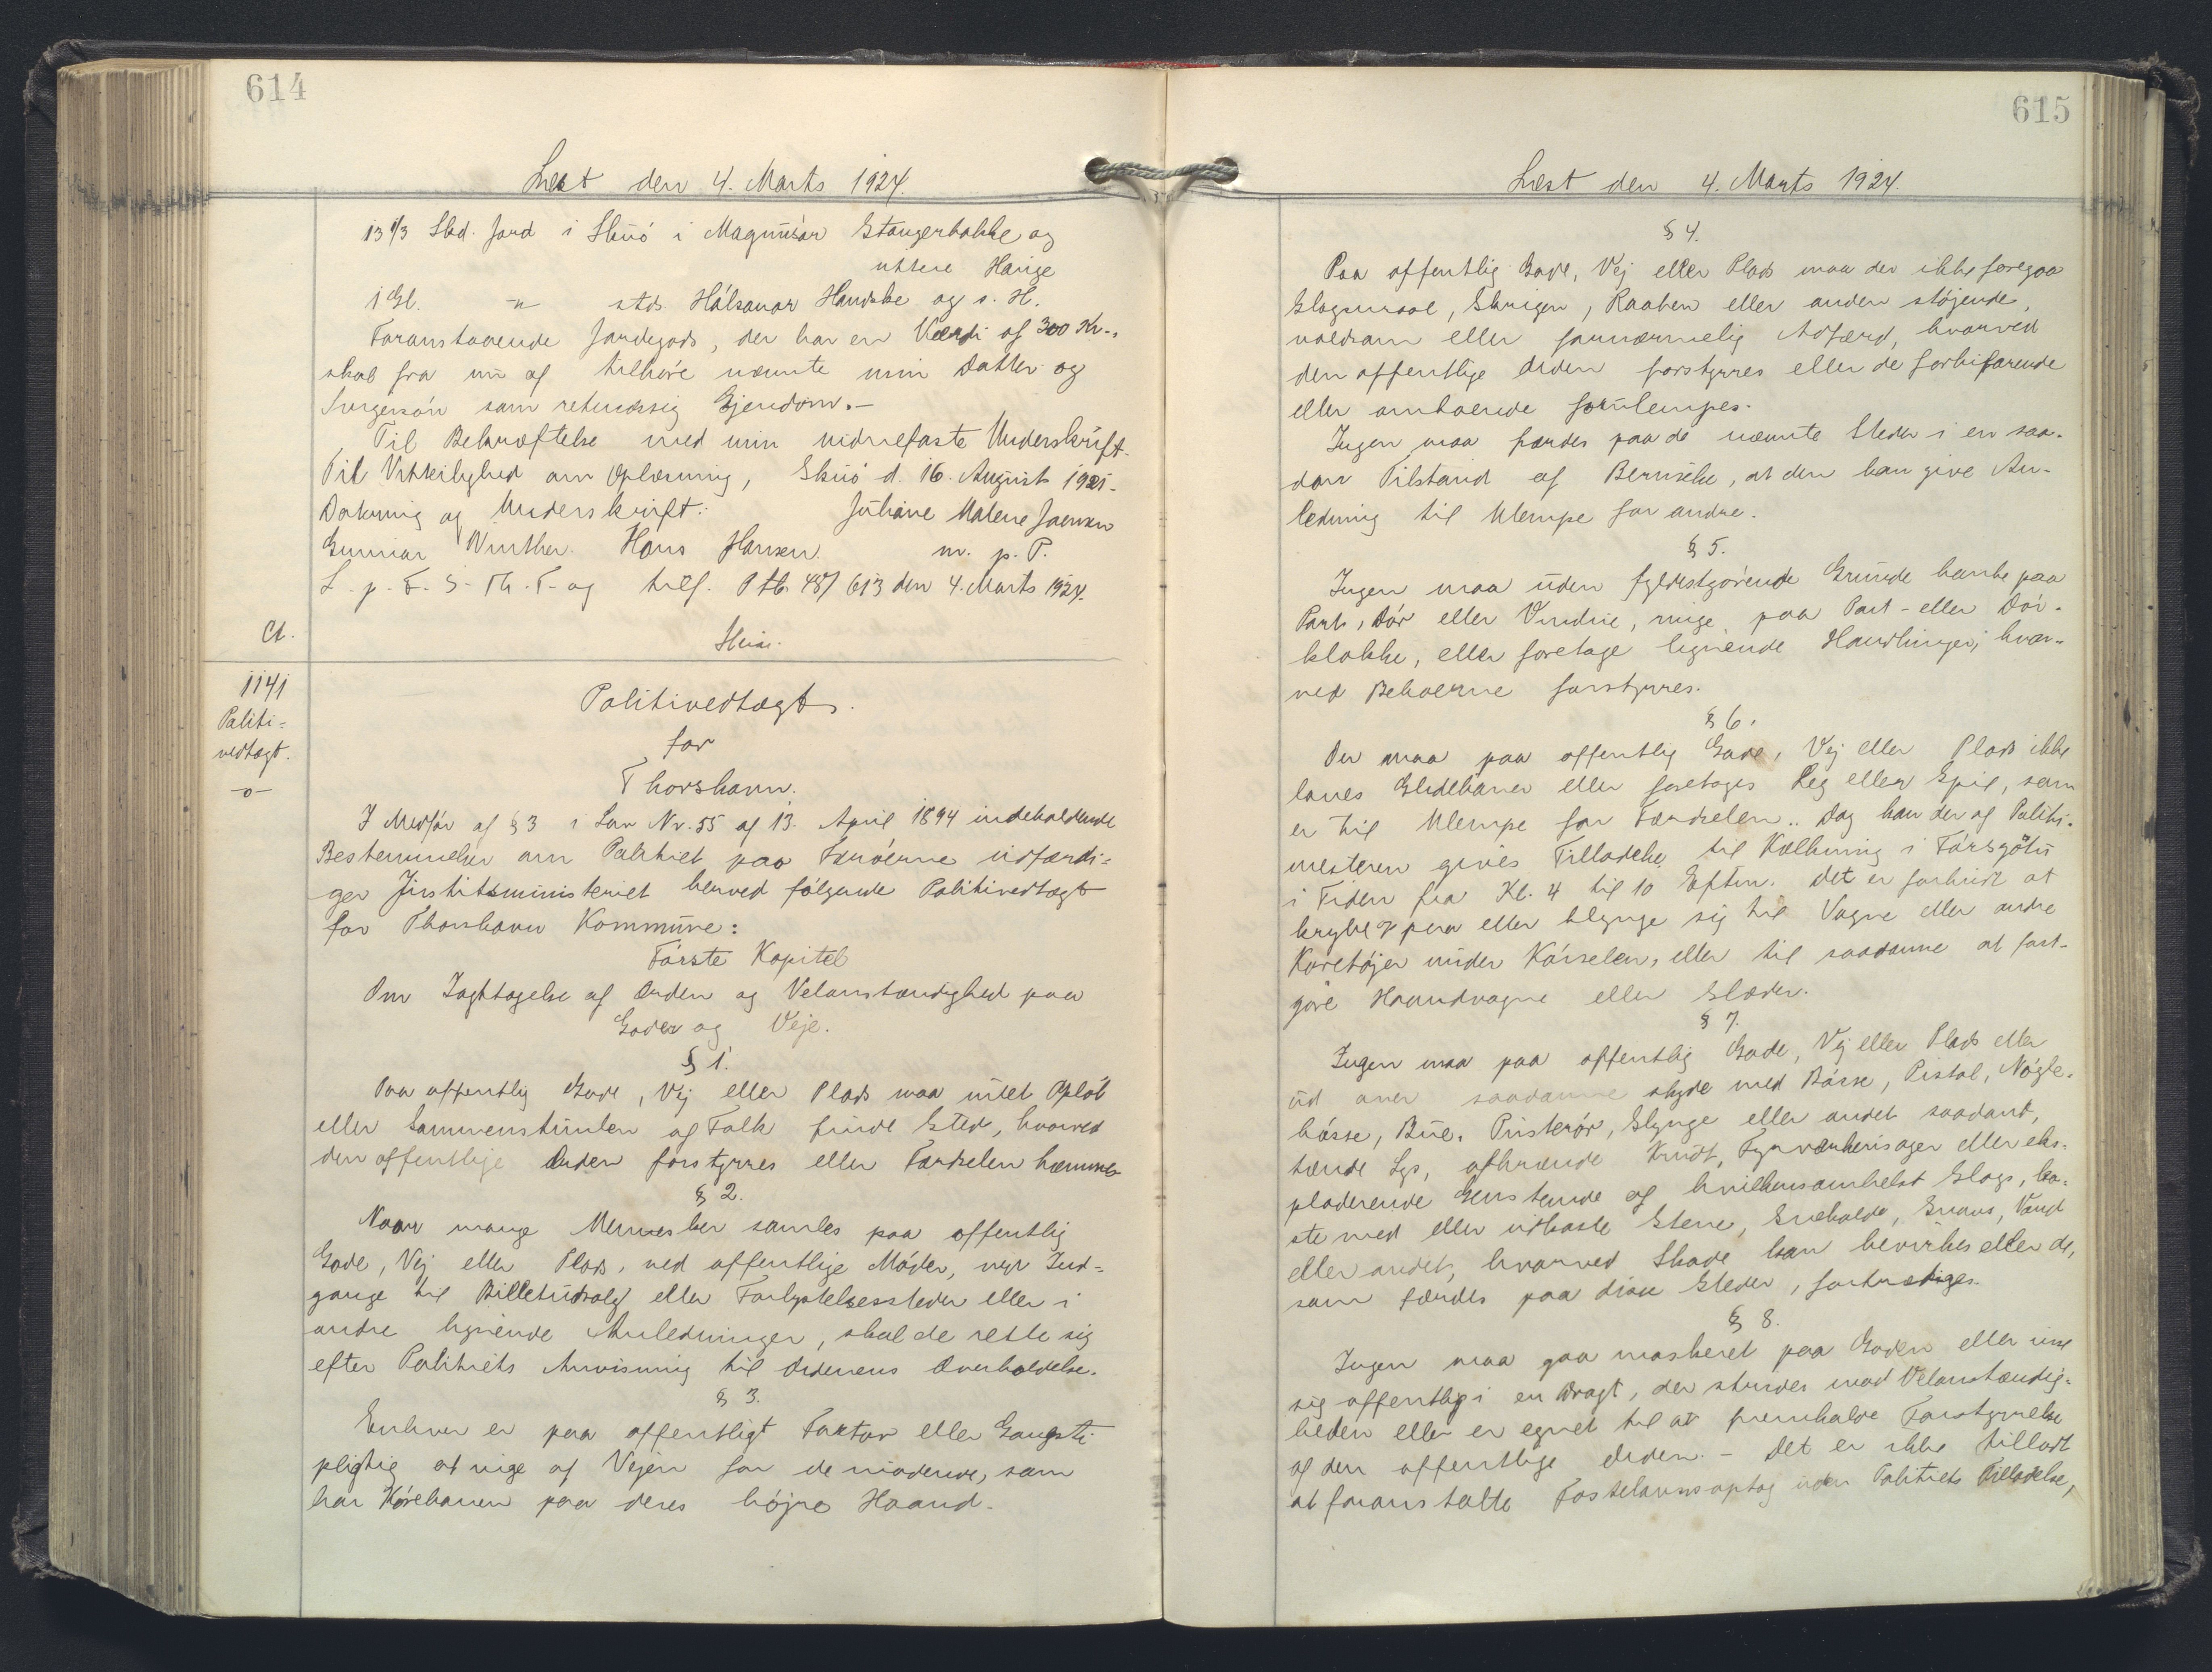 614
Læst den 4. Marts 1924.
13 1/3 Skd. Jord i Skuó i Magnúsar Stangerbakke og
uttere Hauge
1 Gl. -"- stds Hálsanar Handske og s. H.
Foranstaaende Jordegods, der har en Værdi af 300 Kr.,
skal fra nu af tilhøre nævnte min Datter og
Svigersøn som retmæssig Ejendom.-
Til Bekræftelse med min vidnefaste Underskrift.
Til Vitterlighed om Oplæsning, Skuó d. 16. August 1921.
Datering og Underskrift: Juliane Malene Joensen
Gunnar Winther. Hans Hansen. m. p. P.
L. p. F. S. Th. T. og tilf. Ptb. 487/613 den 4. Marts 1924.
Ct.
1141
Politi=
vedtægt.
-o-
Politivedtægt
for
Thorshavn.
I Medfør af § 3 i Lov Nr. 55 af 13. April 1894 indeholdende
Bestemmelser om Politiet paa Færøerne udfærdi=
ger Justitsministeriet herved følgende Politivedtægt
for Thorshavn Kommune:
Første Kapitel
Om Iagttagelse af Orden og Velanstændighed paa
Gader og Veje.
§ 1.
Paa offentlig Gade, Vej eller Plads maa intet Opløb
eller Sammenstimlen af Folk finde Sted, hvorved
den offentlige Orden forstyrres eller Færdselen hæmmes
§ 2.
Naar mange Mennesker samles paa offentlig
Gade, Vej eller Plads, ved offentlige Møder, ved Ind=
gange til Billetudsalg eller Forlystelsessteder eller i
andre lignende Anledninger, skal de rette sig
efter Politiets Anvisning til Ordenens Overholdelse.
§ 3.
Enhver er paa offentligt Fortov eller Gangsti
pligtig at vige af Vejen for de mødende, som
har Kørebanen paa deres højre Haand.
615
Læst den 4. Marts 1924.
§ 4.
Paa offentlig Gade, Vej eller Plads maa der ikke foregaa
Slagsmaal, Skrigen, Raaben eller anden støjende,
voldsom eller fornærmelig Adfærd, hvorved
den offentlige Orden forstyrres eller de forbifarende
eller omboende forulempes.
Ingen maa færdes paa de nævnte Steder i en saa-
dan Tilstand af Beruselse, at den kan give An-
ledning til Ulempe for andre.
§ 5.
Ingen maa uden fyldestgørende Grunde banke paa
Port, Dør eller Vindue, ringe paa Port- eller Dør-
klokke, eller foretage lignende Handlinger, hvor-
ved Beboerne forstyrres.
§ 6.
Der maa paa offentlig Gade, Vej eller Plads ikke
laves Glidebaner eller foretages Leg eller Spil, som
er til Ulempe for Færdselen.. Dog kan der af Politi-
mesteren gives Tilladelse til Kælkning i Tórsgøtu
i Tiden fra Kl. 4 til 10 Eftm. Det er forbudt at
krybe op paa eller slynge sig til Vogne eller andre
Køretøjer under Kørselen, eller til saadanne at fast-
gøre Haandvogne eller Slæder.
§ 7.
Ingen maa paa offentlig Gade, Vej eller Plads eller
ud over saadanne skyde med Bøsse, Pistol, Nøgle-
bøsse, Bue, Pusterør, Slynge eller andet saadant,
tænde Lys, afbrænde Krudt, Fyrværkerisager eller eks-
ploderende Genstande af hvilkensomhelst Slags, ka-
ste med eller udkaste Stene, Snebolde, Snavs, Vand
eller andet, hvorved Skade kan bevirkes eller de,
som færdes paa disse Steder, fortrædiges.
§ 8.
Ingen maa gaa maskeret paa Gaden eller vise
sig offentlig i en Dragt, der strider mod Velanstændig-
heden eller er egnet til at fremkalde Forstyrrelse
af den offentlige Orden. - Det er ikke tilladt
at foranstalte Fastelavnsoptog uden Politiets Tilladelse,